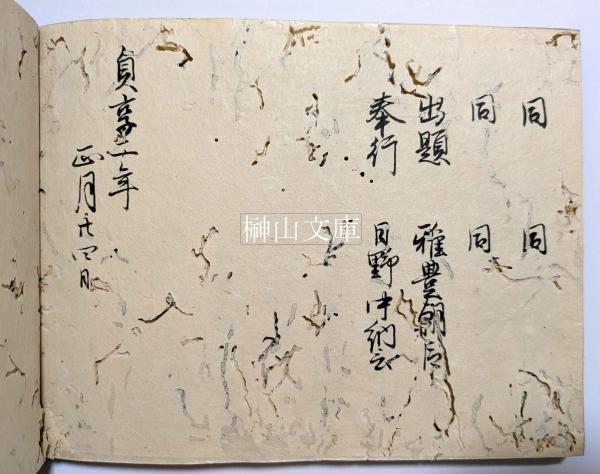 同 同
同 同
出題 雅豊朝臣
奉行 日野中納言
貞享 年
正月廿四日
榊山文庫